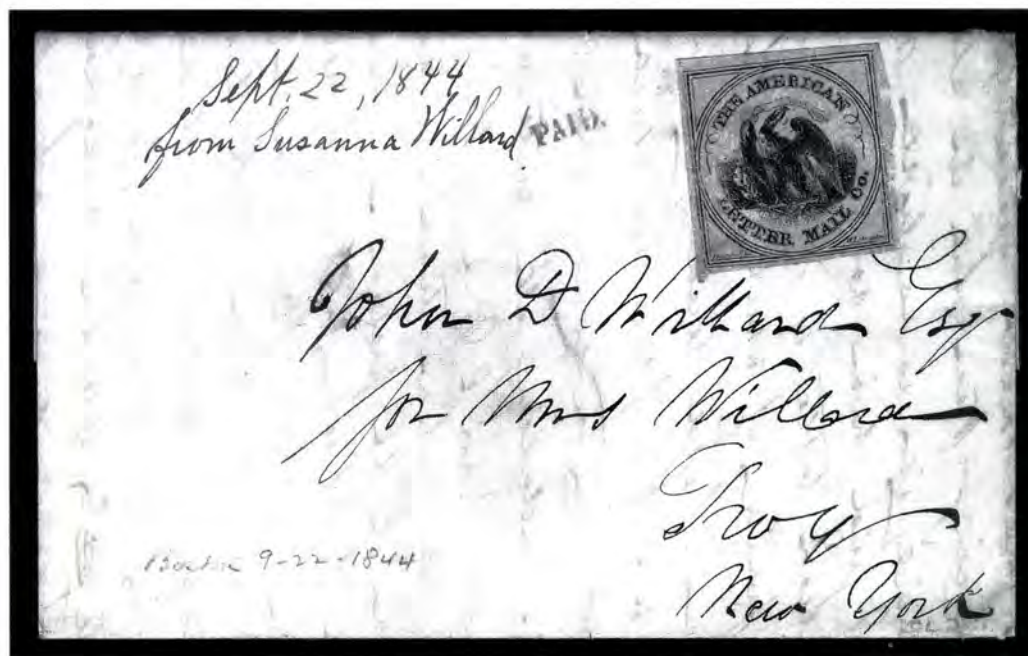 Sept. 22, 1844
from Susanna Willard
PAID.
THE AMERICAN
LETTER MAIL Co.
John D Willard Esq
for Mrs Willard
Troy
New York
Boston 9-22-1844